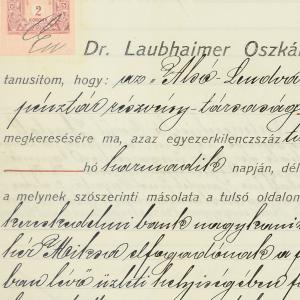 2
Dr. Laubhaimer Oszká
tanusitom, hogy: az „Alsó-Lendva
pénztár részvény-társaság
megkeresésére ma, azaz egyezerkilenczszáz
hó harmadik napján, dél
a melynek szószerinti másolata a tulsó oldalon
kereskedelmi bank nagykani
hér Miksa elfogadónak a
ban lévő üzleti helyiségében f